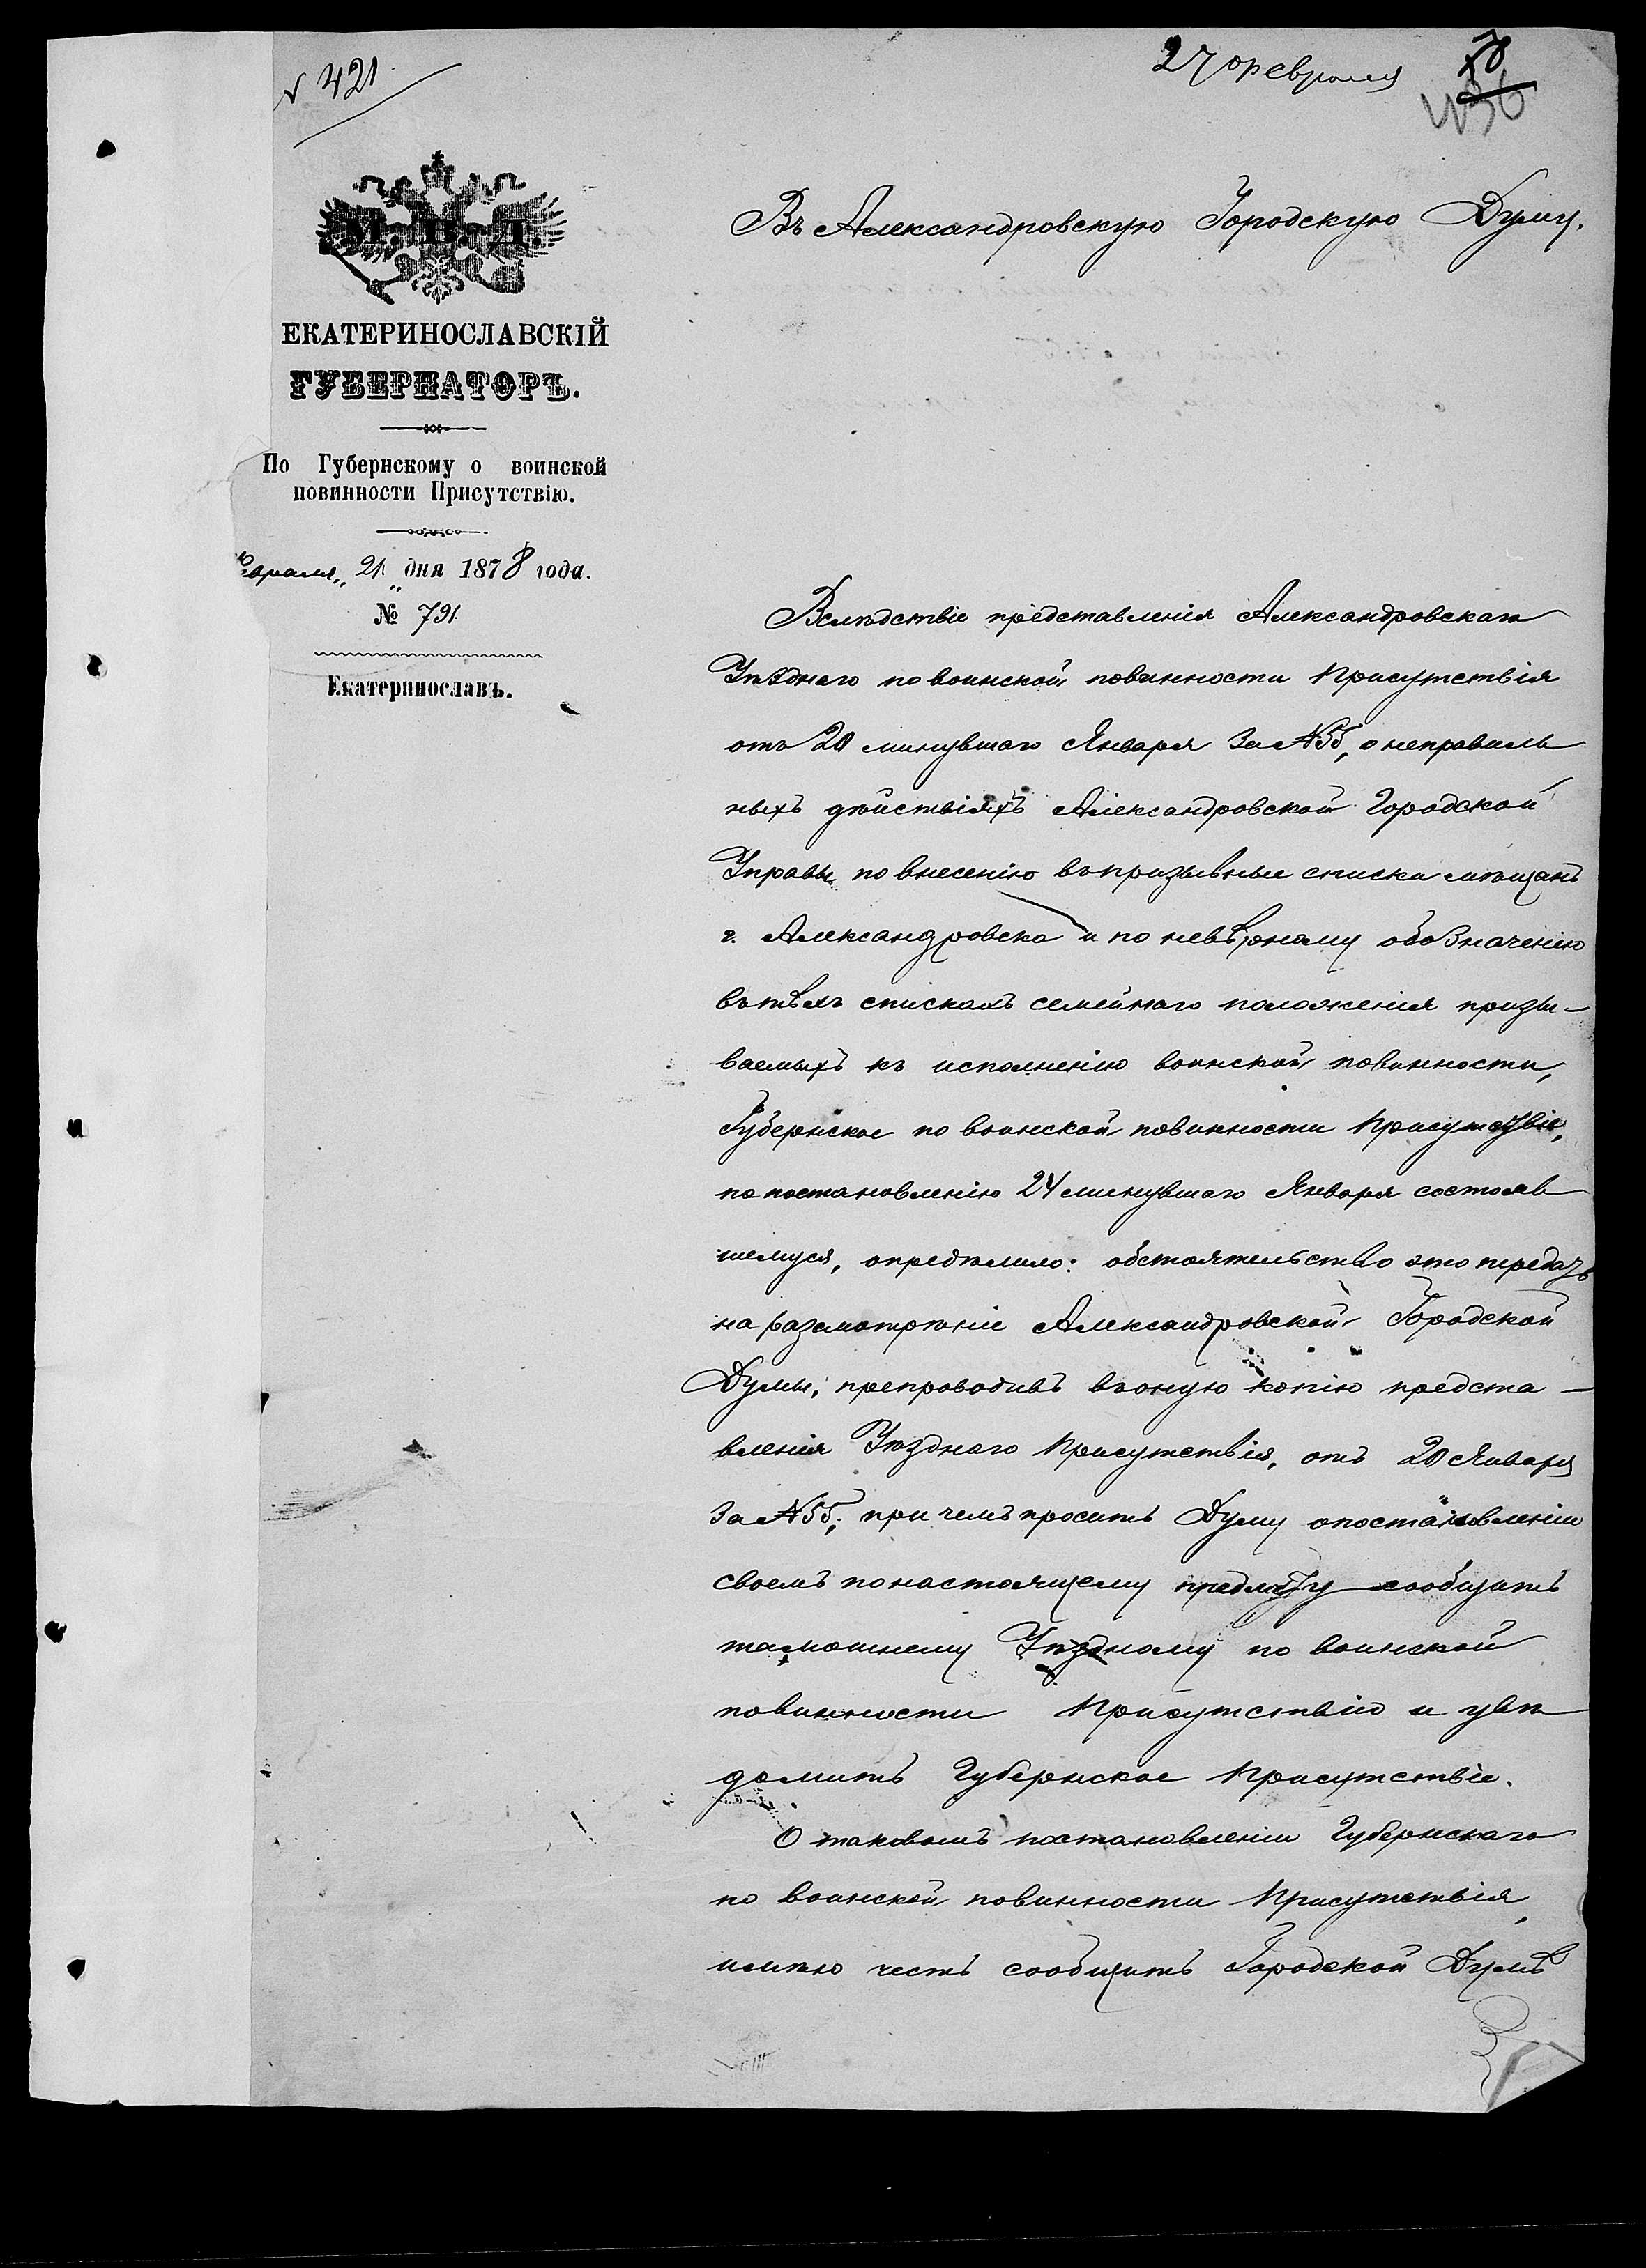 № 421
27 февраля
М. В. Д.
ЕКАТЕРИНОСЛАВСКІЙ
ГУБЕРНАТОРЪ.
По Губернскому о воинской
повинности Присутствію.
февраля „21„ дня 1878 года.
№ 791.
Екатеринославъ.
Въ Александровскую Городскую Думу.
Вслѣдствіе представленія Александровскаго
Уѣзднаго по воинской повинности Присутствія
отъ 20 минувшаго Января за № 55, о неправиль
ныхъ дѣйствіяхъ Александровской Городской
Управы по внесенію въ призывные списки мѣщанъ
г. Александровска и по невѣрному обозначенію
въ тѣхъ спискахъ семейнаго положенія призы-
ваемыхъ къ исполненію воинской повинности,
Губернское по воинской повинности Присутствіе,
по постановленію 24 минувшаго Января состояв
шемуся, опредѣлило: обстоятельство это передать
на разсмотрѣніе Александровской Городской
Думы, препроводивъ въ оную копію предста-
вленія Уѣзднаго Присутствія, отъ 20 Января
за № 55, при чемъ просить Думу о постановленіи
своемъ по настоящему предмету сообщить
тамошнему Уѣздному по воинской
повинности Присутствію и увѣ
домить Губернское Присутствіе.
О таковомъ постановленіи Губернскаго
по воинской повинности Присутствія,
имѣю честь сообщить Городской Думѣ